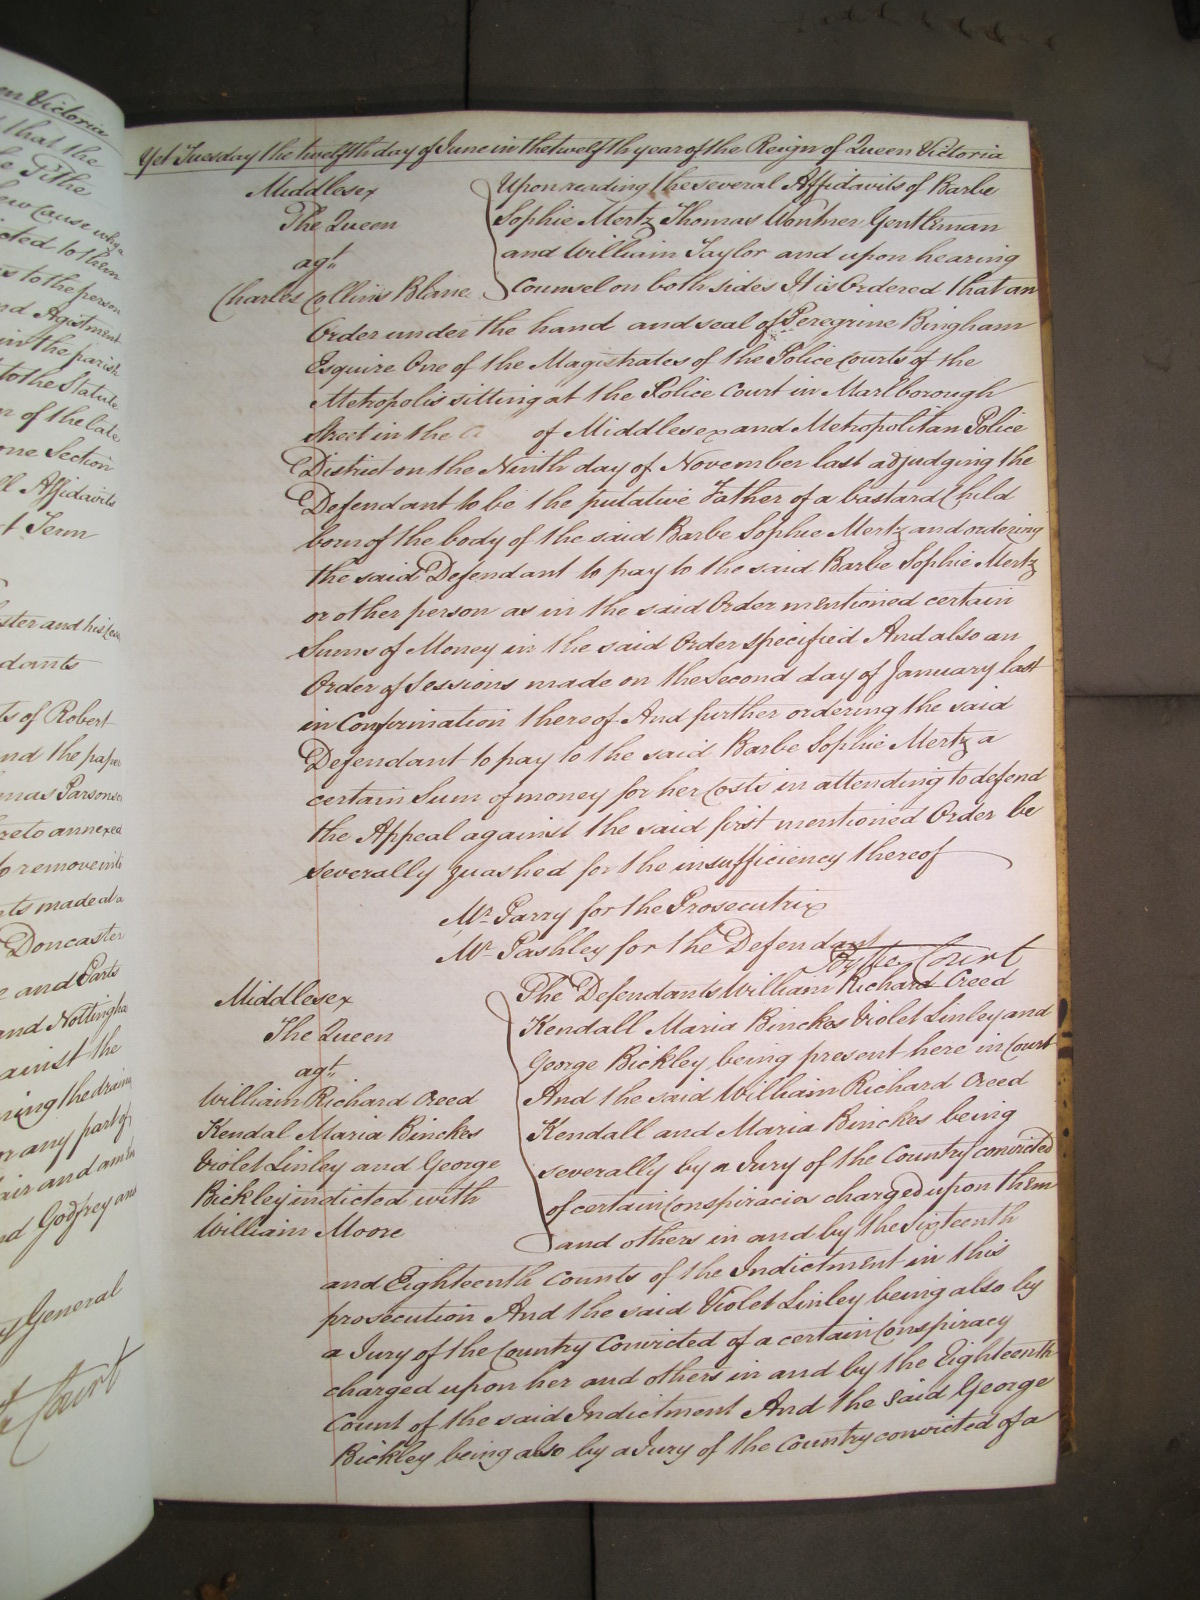 en Victoria
that the
Pithe
cause why a
cted to them
is to the person
nd Agistment
in the parish
to the Statute
of the late
one Section
ll Affidavits
t Term
ster and his
dants
ts of Robert
and the paper
mas Parson
reto annexed
to remove
ts made at a
Doncaster
and Parts
and Nottingha
ainst the
ring the drain
or any part of
air and amen
d Godfrey and
y General
Court
Yet Tuesday the twelfth day of June in the twelfth year of the Reign of Queen Victoria
Middlesex
The Queen
agt.
Charles Collins Blane
Upon reading the several Affidavits of Barbe
Sophie Mertz Thomas Wontner Gentleman
and William Taylor and upon hearing
Counsel on both sides It is Ordered that an
Order under the hand and seal of Peregrine Bingham
Esquire One of the Magistrates of the Police Courts of the
Metropolis sitting at the Police Court in Marlborough
Street in the C of Middlesex and Metropolitan Police
District on the Ninth day of November last adjudging the
Defendant to be the putative Father of a bastard Child
born of the body of the said Barbe Sophie Mertz and ordering
the said Defendant to pay to the said Barbe Sophie Mertz
or other person as in the said Order mentioned certain
Sums of Money in the said Order specified And also an
Order of Sessions made on the Second day of January last
in Confirmation thereof And further ordering the said
Defendant to pay to the said Barbe Sophie Mertz a
certain Sum of money for her Costs in attending to defend
the Appeal against the said first mentioned Order be
severally quashed for the insufficiency thereof
Mr. Parry for the Prosecutrix
Mr. Pashley for the Defendant
By the Court
Middlesex
The Queen
agt.
William Richard Creed
Kendal Maria Binckes
Violet Linley and George
Bickley indicted with
William Moore
The Defendants William Richard Creed
Kendall Maria Binckes Violet Linley and
George Bickley being present here in Court
And the said William Richard Creed
Kendall and Maria Binckes being
severally by a Jury of the Country convicted
of certain Conspiracies charged upon them
and others in and by the Sixteenth
and Eighteenth Counts of the Indictment in this
prosecution And the said Violet Linley being also by
a Jury of the Country Convicted of a certain Conspiracy
charged upon her and others in and by the Eighteenth
Count of the said Indictment And the said George
Bickley being also by a Jury of the Country convicted of a